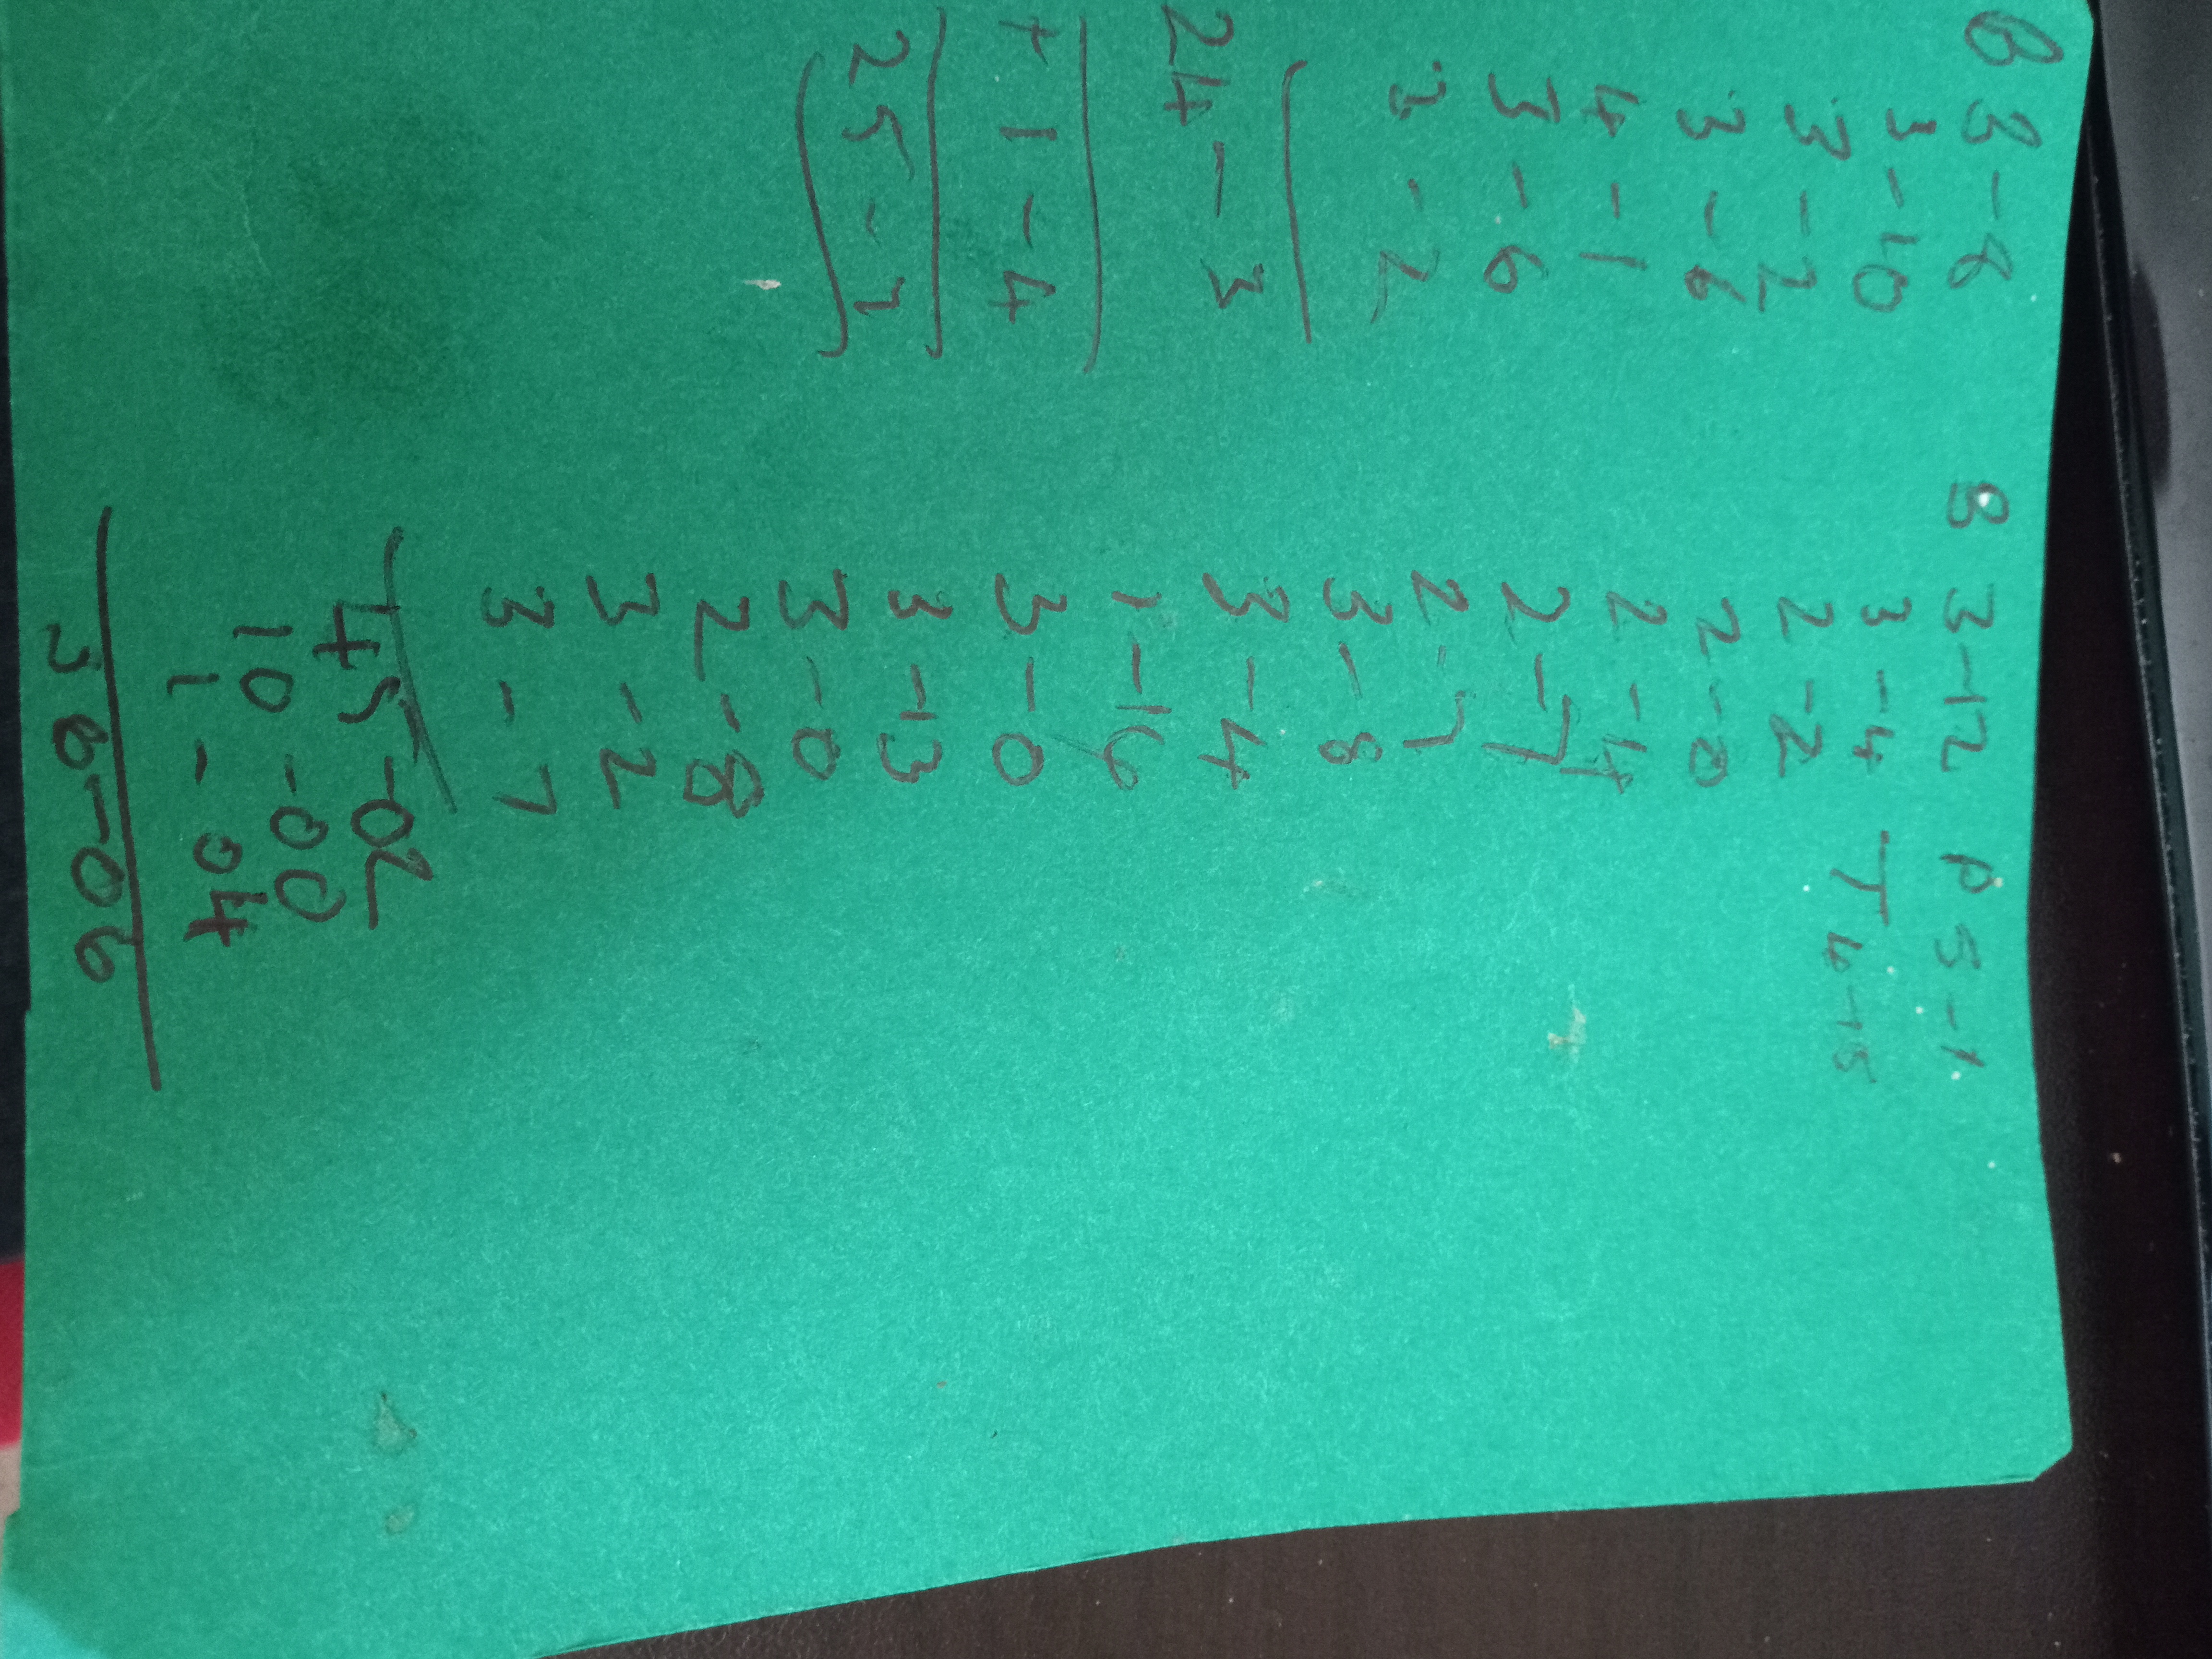 B 3-8
3-10
3-2
3-6
4-1
3-6
3-2
24-3
+1-4
25-7
B 3-12
3-4
2-2
2-0
2-14
2-7
2-7
3-8
3-4
1-16
3-0
3-13
3-0
2-8
3-2
3-7
45-02
10-00
1-04
56-06
P 5-1
T
4-15